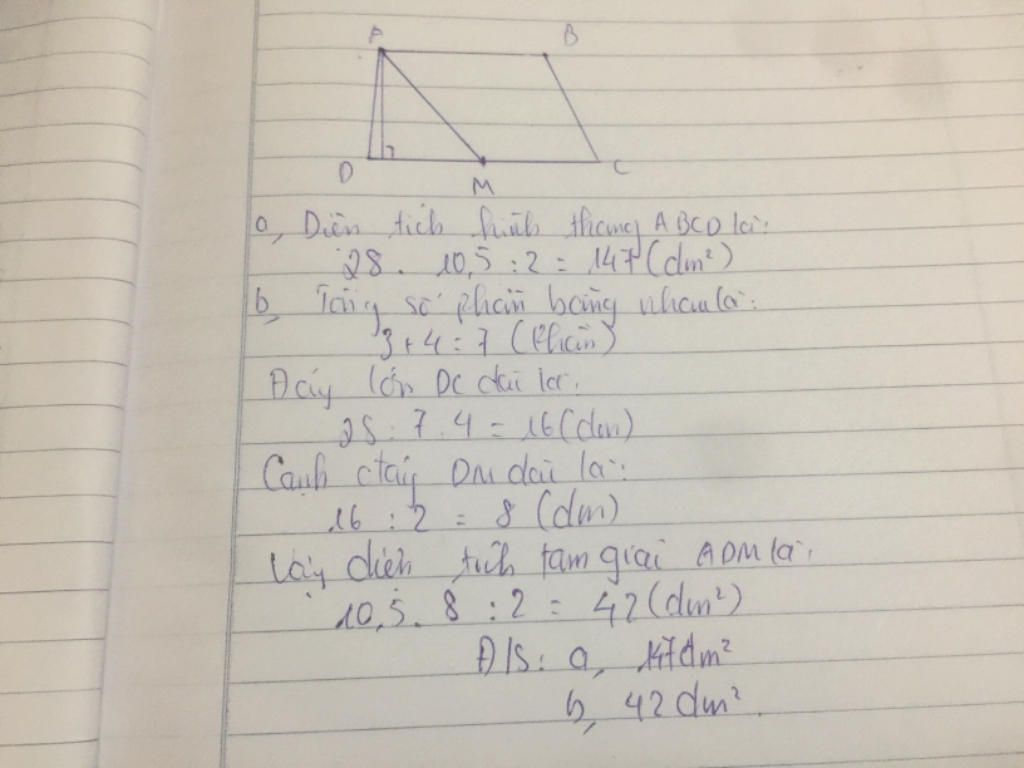 A B
D M C
a, Diện tích hình thang ABCD là:
28 . 10,5 : 2 = 147 (dm²)
b, Tổng số phần bằng nhau là:
3 + 4 = 7 (Phần)
Đáy lớn DC dài là:
28 : 7 . 4 = 16 (dm)
Cạnh đáy DM dài là:
16 : 2 = 8 (dm)
Vậy diện tích tam giác ADM là:
10,5 . 8 : 2 = 42 (dm²)
Đ/S: a, 147dm²
b, 42 dm²